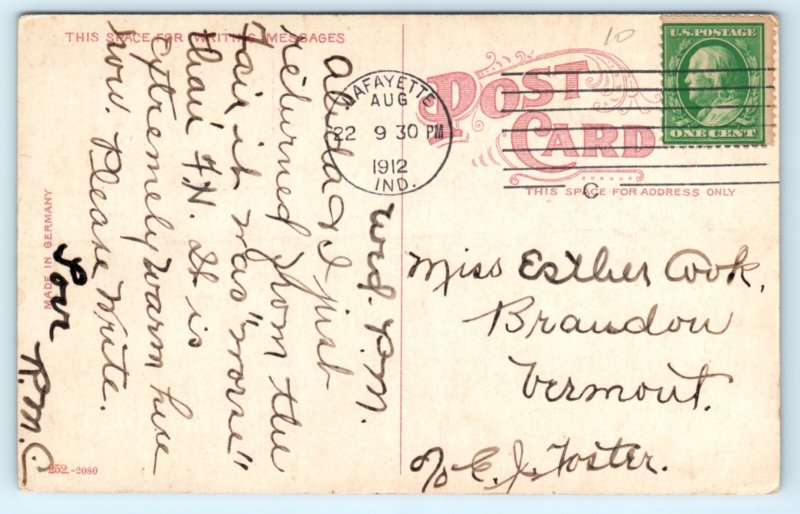 THIS SPACE FOR WRITING MESSAGES
Wed. P.M.
& I just
returned from the
Fair it was "worse"
than F.N. It is
extremely warm here
now. Please Write.
Lov
R.M.C
MADE IN GERMANY
252.-2080
POST
CARD
THIS SPACE FOR ADDRESS ONLY
LAFAYETTE
AUG
22 9 30 PM
1912
IND.
C
10
U.S. POSTAGE
ONE CENT
Miss Esther Cook,
Brandon
Vermont.
℅ E. J. Foster.